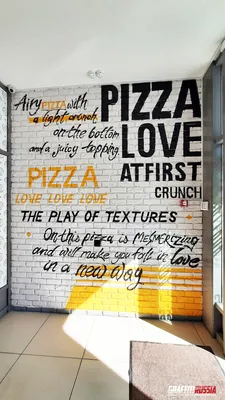 Airy PIZZA with
a light crunch
on the bottom
and a juicy topping
PIZZA
LOVE
AT FIRST
CRUNCH
PIZZA
LOVE LOVE LOVE
THE PLAY OF TEXTURES
On this pizza is MESMERIZING
and will make you fall in love
in a new way
GRAFFITI RUSSIA